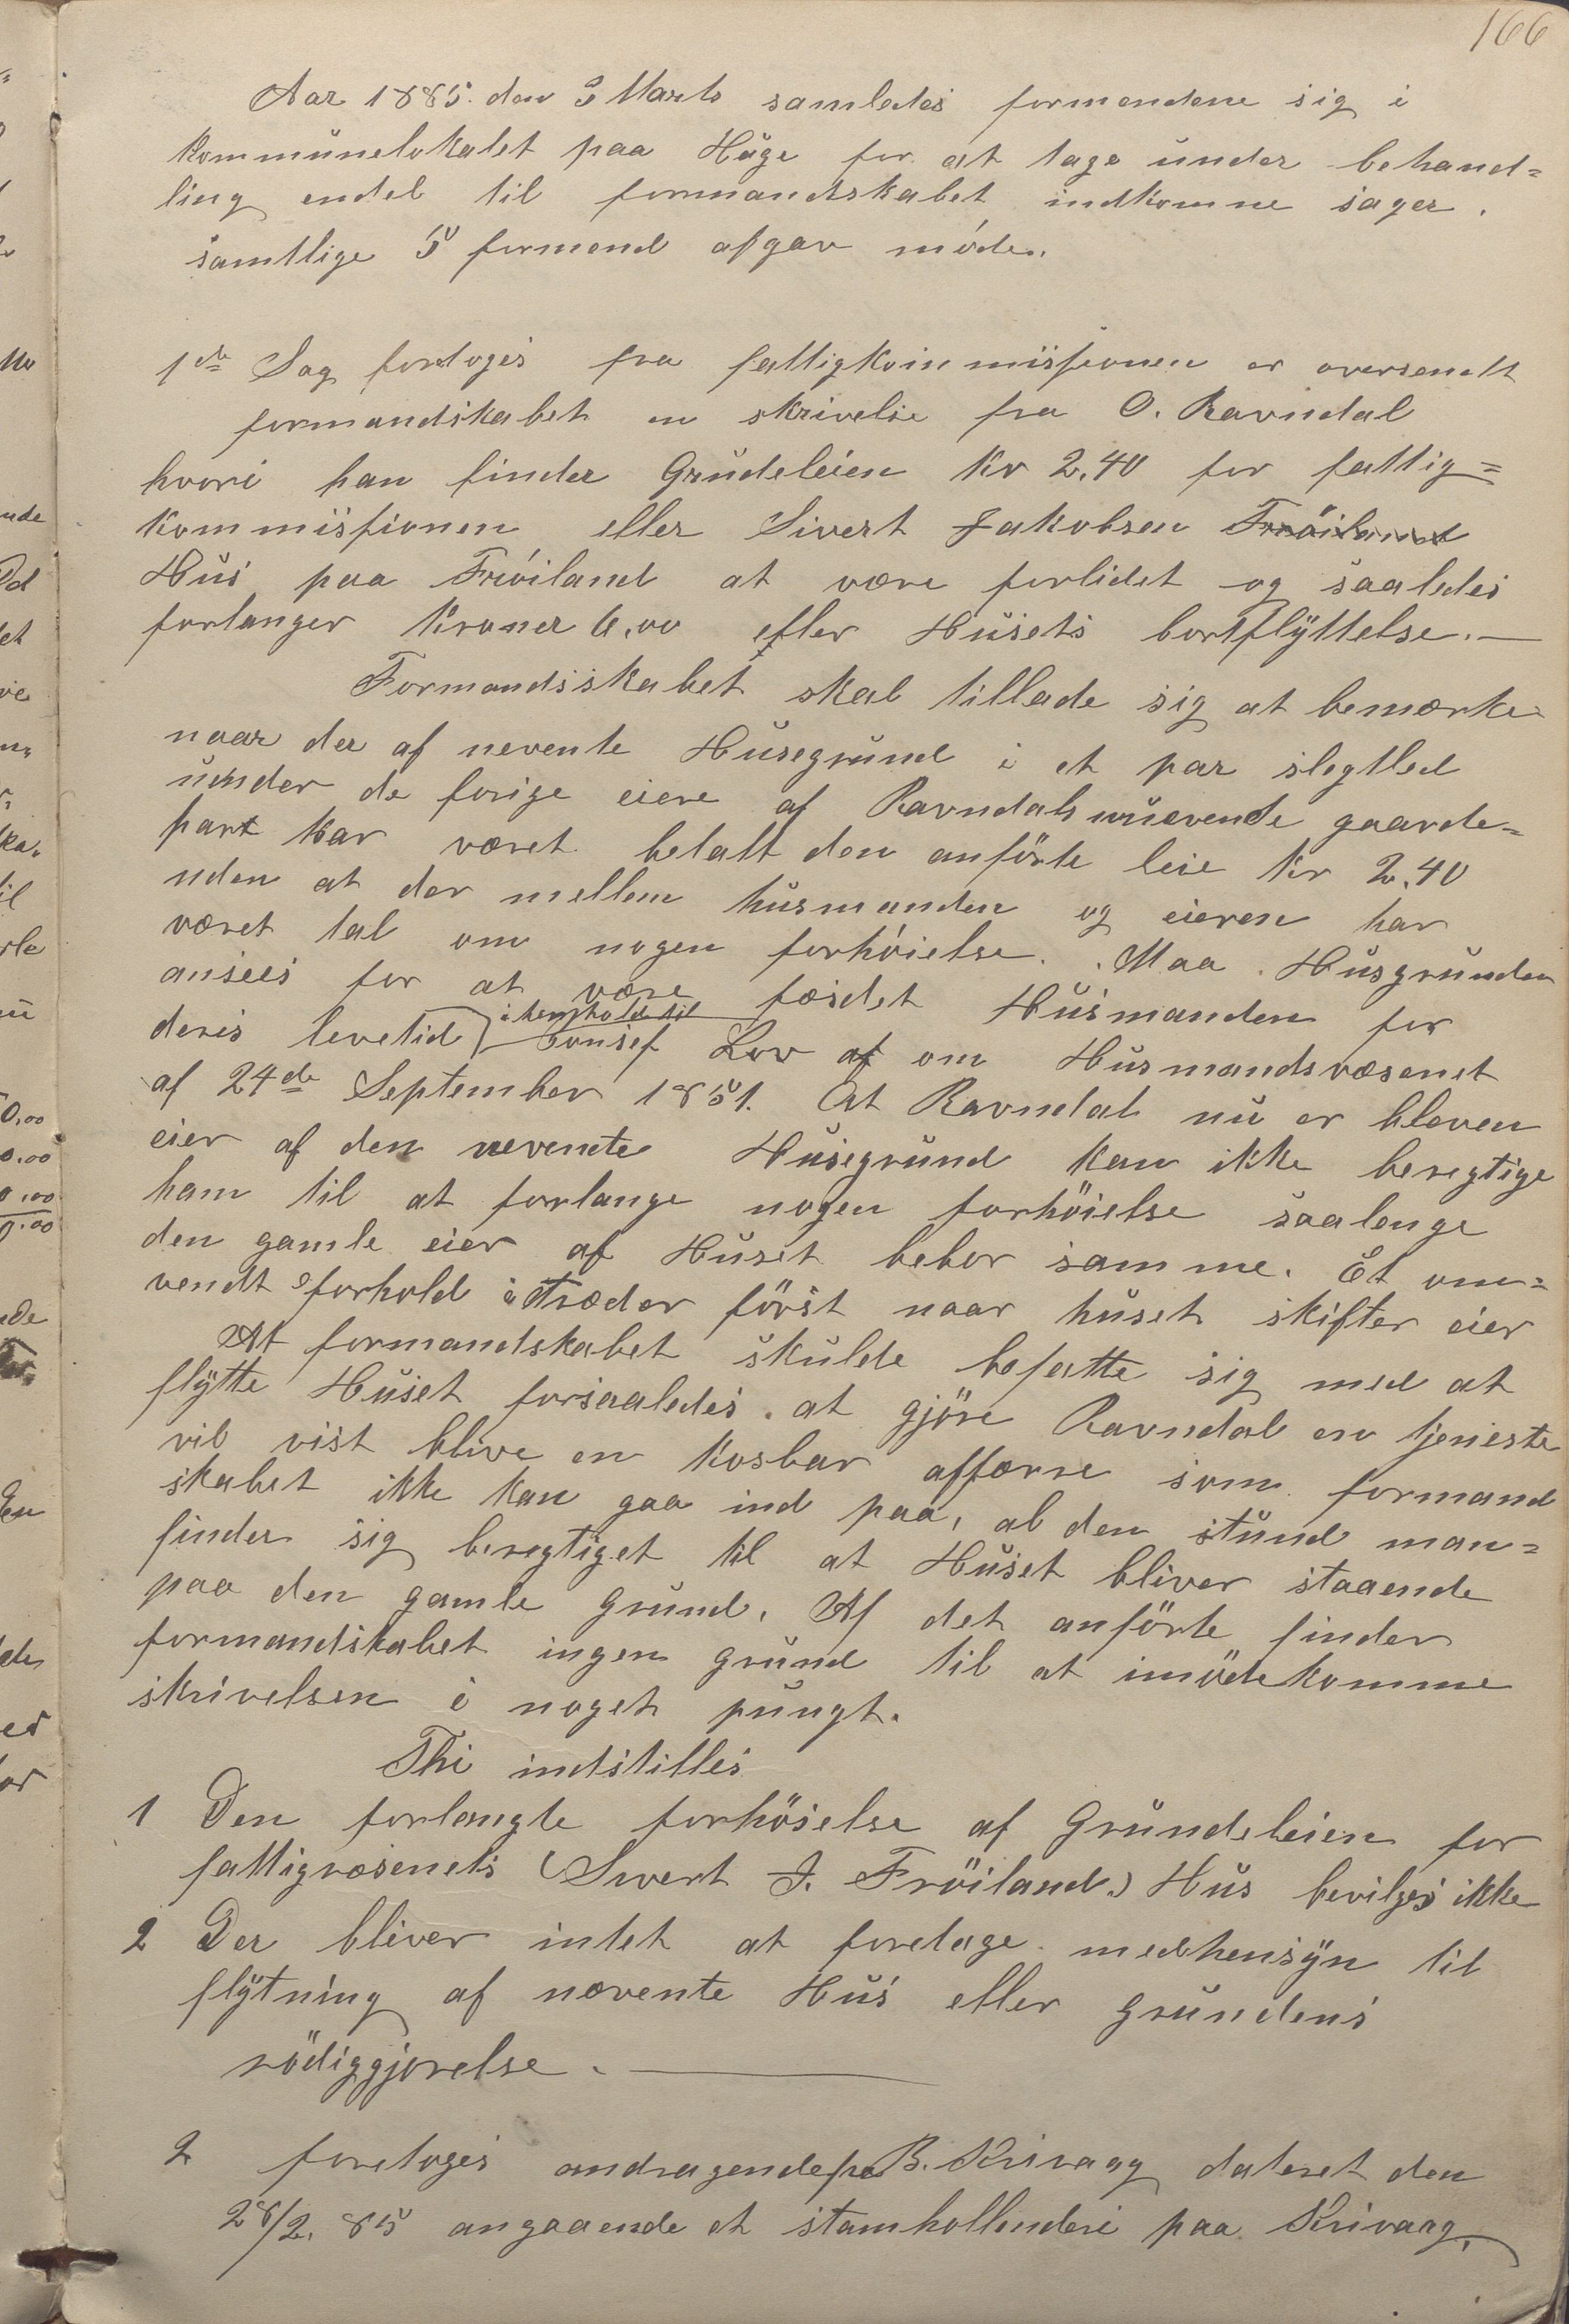 166
Aar 1885. den 3 Marts samledes formendene sig i
kommunelokalet paa Hage for at tage under behand=
ling endel til formandskabet indkomne sager.
samtlige 5 formend afgav møde.
1ste Sag foretoges fra fattigkommissionen er oversendt
formandskabet en skrivelse fra O. Ravndal
hvori han finder Grundeleien Kr 2.40 for fattig=
kommissionen eller Sivert Jakobsen Frøiland
Hus paa Frøiland at være forlidet og saaledes
forlanger Kroner 6,00 eller Husets bortflyttelse.—
Formandsskabet skal tillade sig at bemærke
naar der af nevente Husegrund i et par slegtled
under de forige eiere af Ravndals nuevende gaarde=
part har været betalt den anførte leie Kr 2.40
uden at der mellem husmanden og eieren har
været tal om nogen forhøielse. Maa Husgrunden
ansees for at være fæstet Husmanden for
deres levetid i henhold til Lov af om Husmandsvæsenet
af 24de September 1851. At Ravndal nu er bleven
eier af den nevente Husegrund kan ikke beregtige
ham til at forlange nogen forhøielse saalenge
den gamle eier af Huset bebor samme. Et om=
vendt forhold itræder først naar huset skifter eier
At formandskabet skulde befatte sig med at
flytte Huset forsaaledes at gjøre Ravndal en tjeneste
vil vist blive en kosbar affærre som formand
skabet ikke kan gaa ind paa, al den stund man=
finder sig beregtiget til at Huset bliver staaende
paa den gamle grund. Af det anførte finder
formandskabet ingen grund til at imødekomme
skrivelsen i noget pungt.
Thi indstilles
1 Den forlangte forhøielse af Grundeleien for
fattigvæsenets (Sivert J. Frøiland.) Hus bevilges ikke
2 Der bliver intet at foretage medhensyn til
flytning af nævente Hus eller grundens
rödiggjørelse.
2 foretoges andragende fra B. Krivaag dateret den
28/2. 85 angaaende et stamhollenderi paa Krivaag,